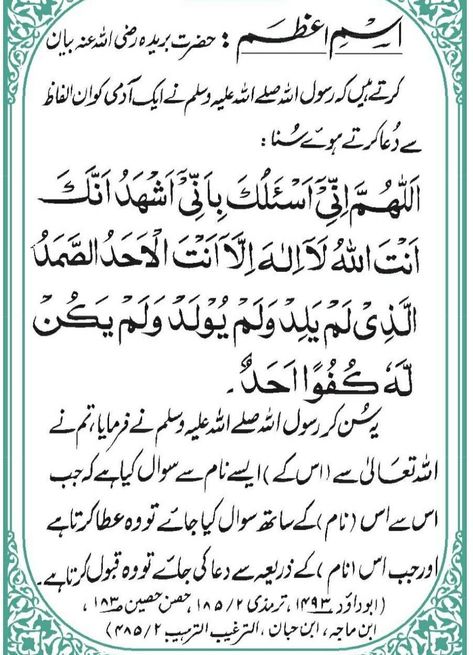 اسمِ اعظم : حضرت بریدہ رضی اللہ عنہ بیان
کرتے ہیں کہ رسول اللہ صلے اللہ علیہ وسلم نے ایک آدمی کو ان الفاظ
سے دُعا کرتے ہوئے سُنا :
اَللّٰهُمَّ اِنِّیْٓ اَسْئَلُكَ بِاَنِّیْٓ اَشْهَدُ اَنَّكَ
اَنْتَ اللّٰهُ لَآ اِلٰهَ اِلَّا اَنْتَ الْاَحَدُ الصَّمَدُ
الَّذِیْ لَمْ یَلِدْ وَلَمْ یُوْلَدْ وَلَمْ یَكُنْ
لَّهٗ كُفُوًا اَحَدٌ۔
یہ سُن کر رسول اللہ صلے اللہ علیہ وسلم نے فرمایا، تم نے
اللہ تعالیٰ سے (اس کے) ایسے نام سے سوال کیا ہے کہ جب
اس سے اس (نام) کے ساتھ سوال کیا جائے تو وہ عطا کرتا ہے
اور جب اس (نام) کے ذریعہ سے دعا کی جائے تو وہ قبول کرتا ہے۔
(ابوداؤد ۱۴۹۳، ترمذی ۱۸۵/۲، حصن حصین صـ ۱۸۳،
ابن ماجہ، ابن حبان، الترغیب الترہیب ۴۸۵/۲)